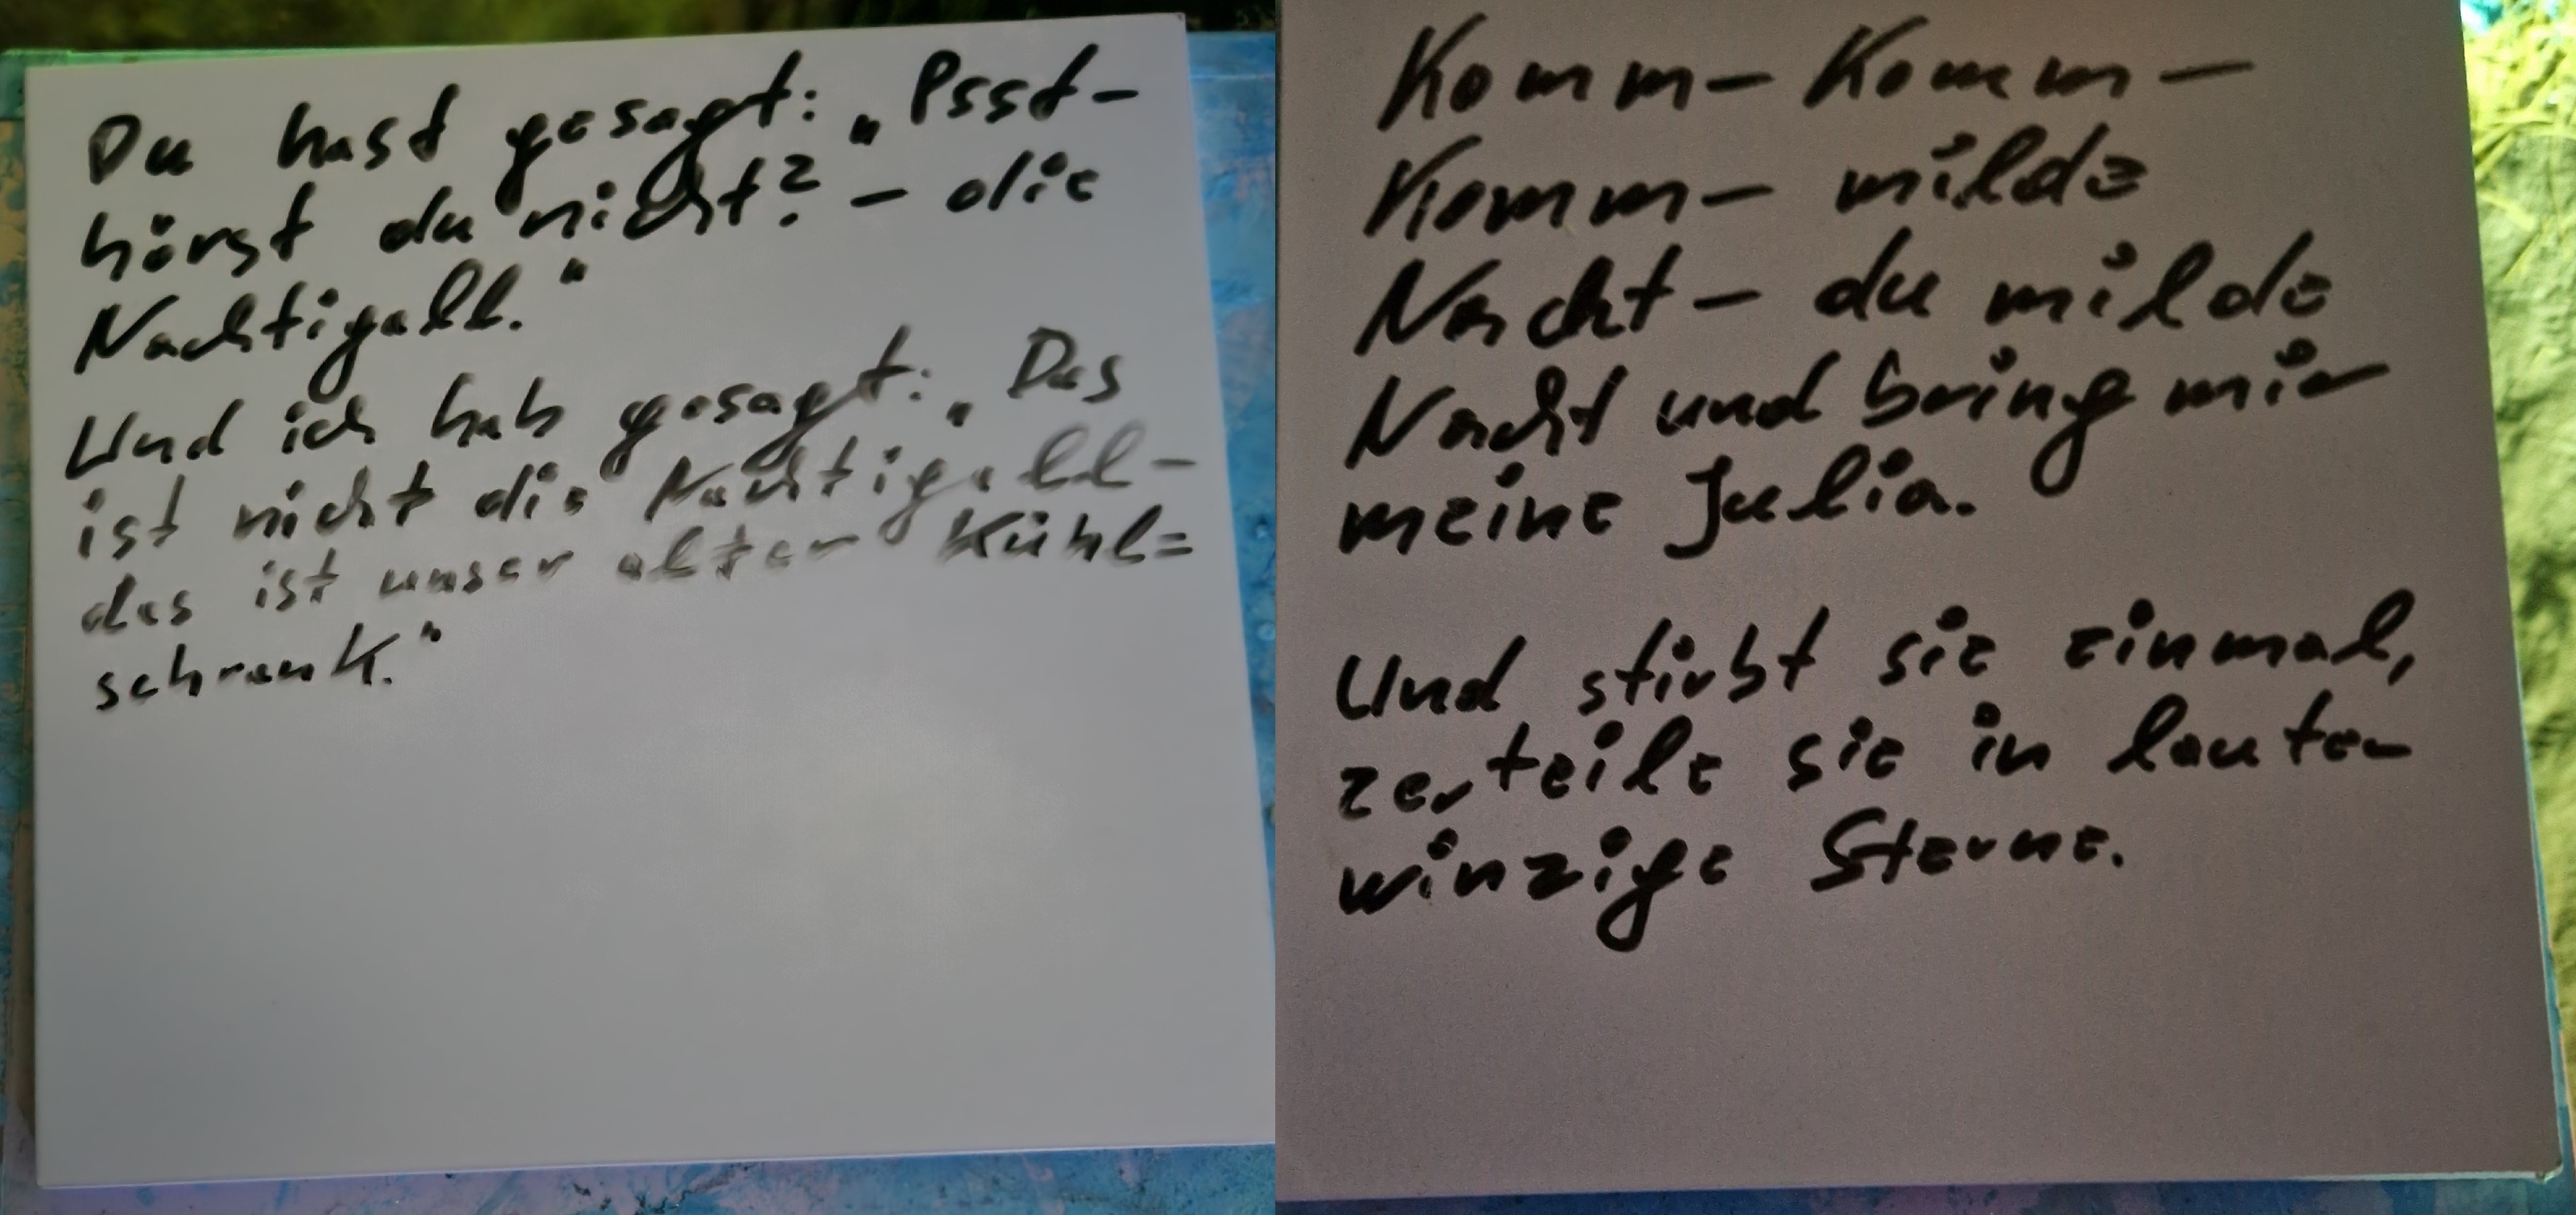 Du hast gesagt: „Psst-
hörst du nicht? – die
Nachtigall."
Und ich hab gesagt: „Das
ist nicht die Nachtigall –
das ist unser alter Kühl=
schrank."
Komm – Komm –
Komm – milde
Nacht – du milde
Nacht und bring mir
meine Julia.
Und stirbt sie einmal,
zerteile sie in lauter
winzige Sterne.